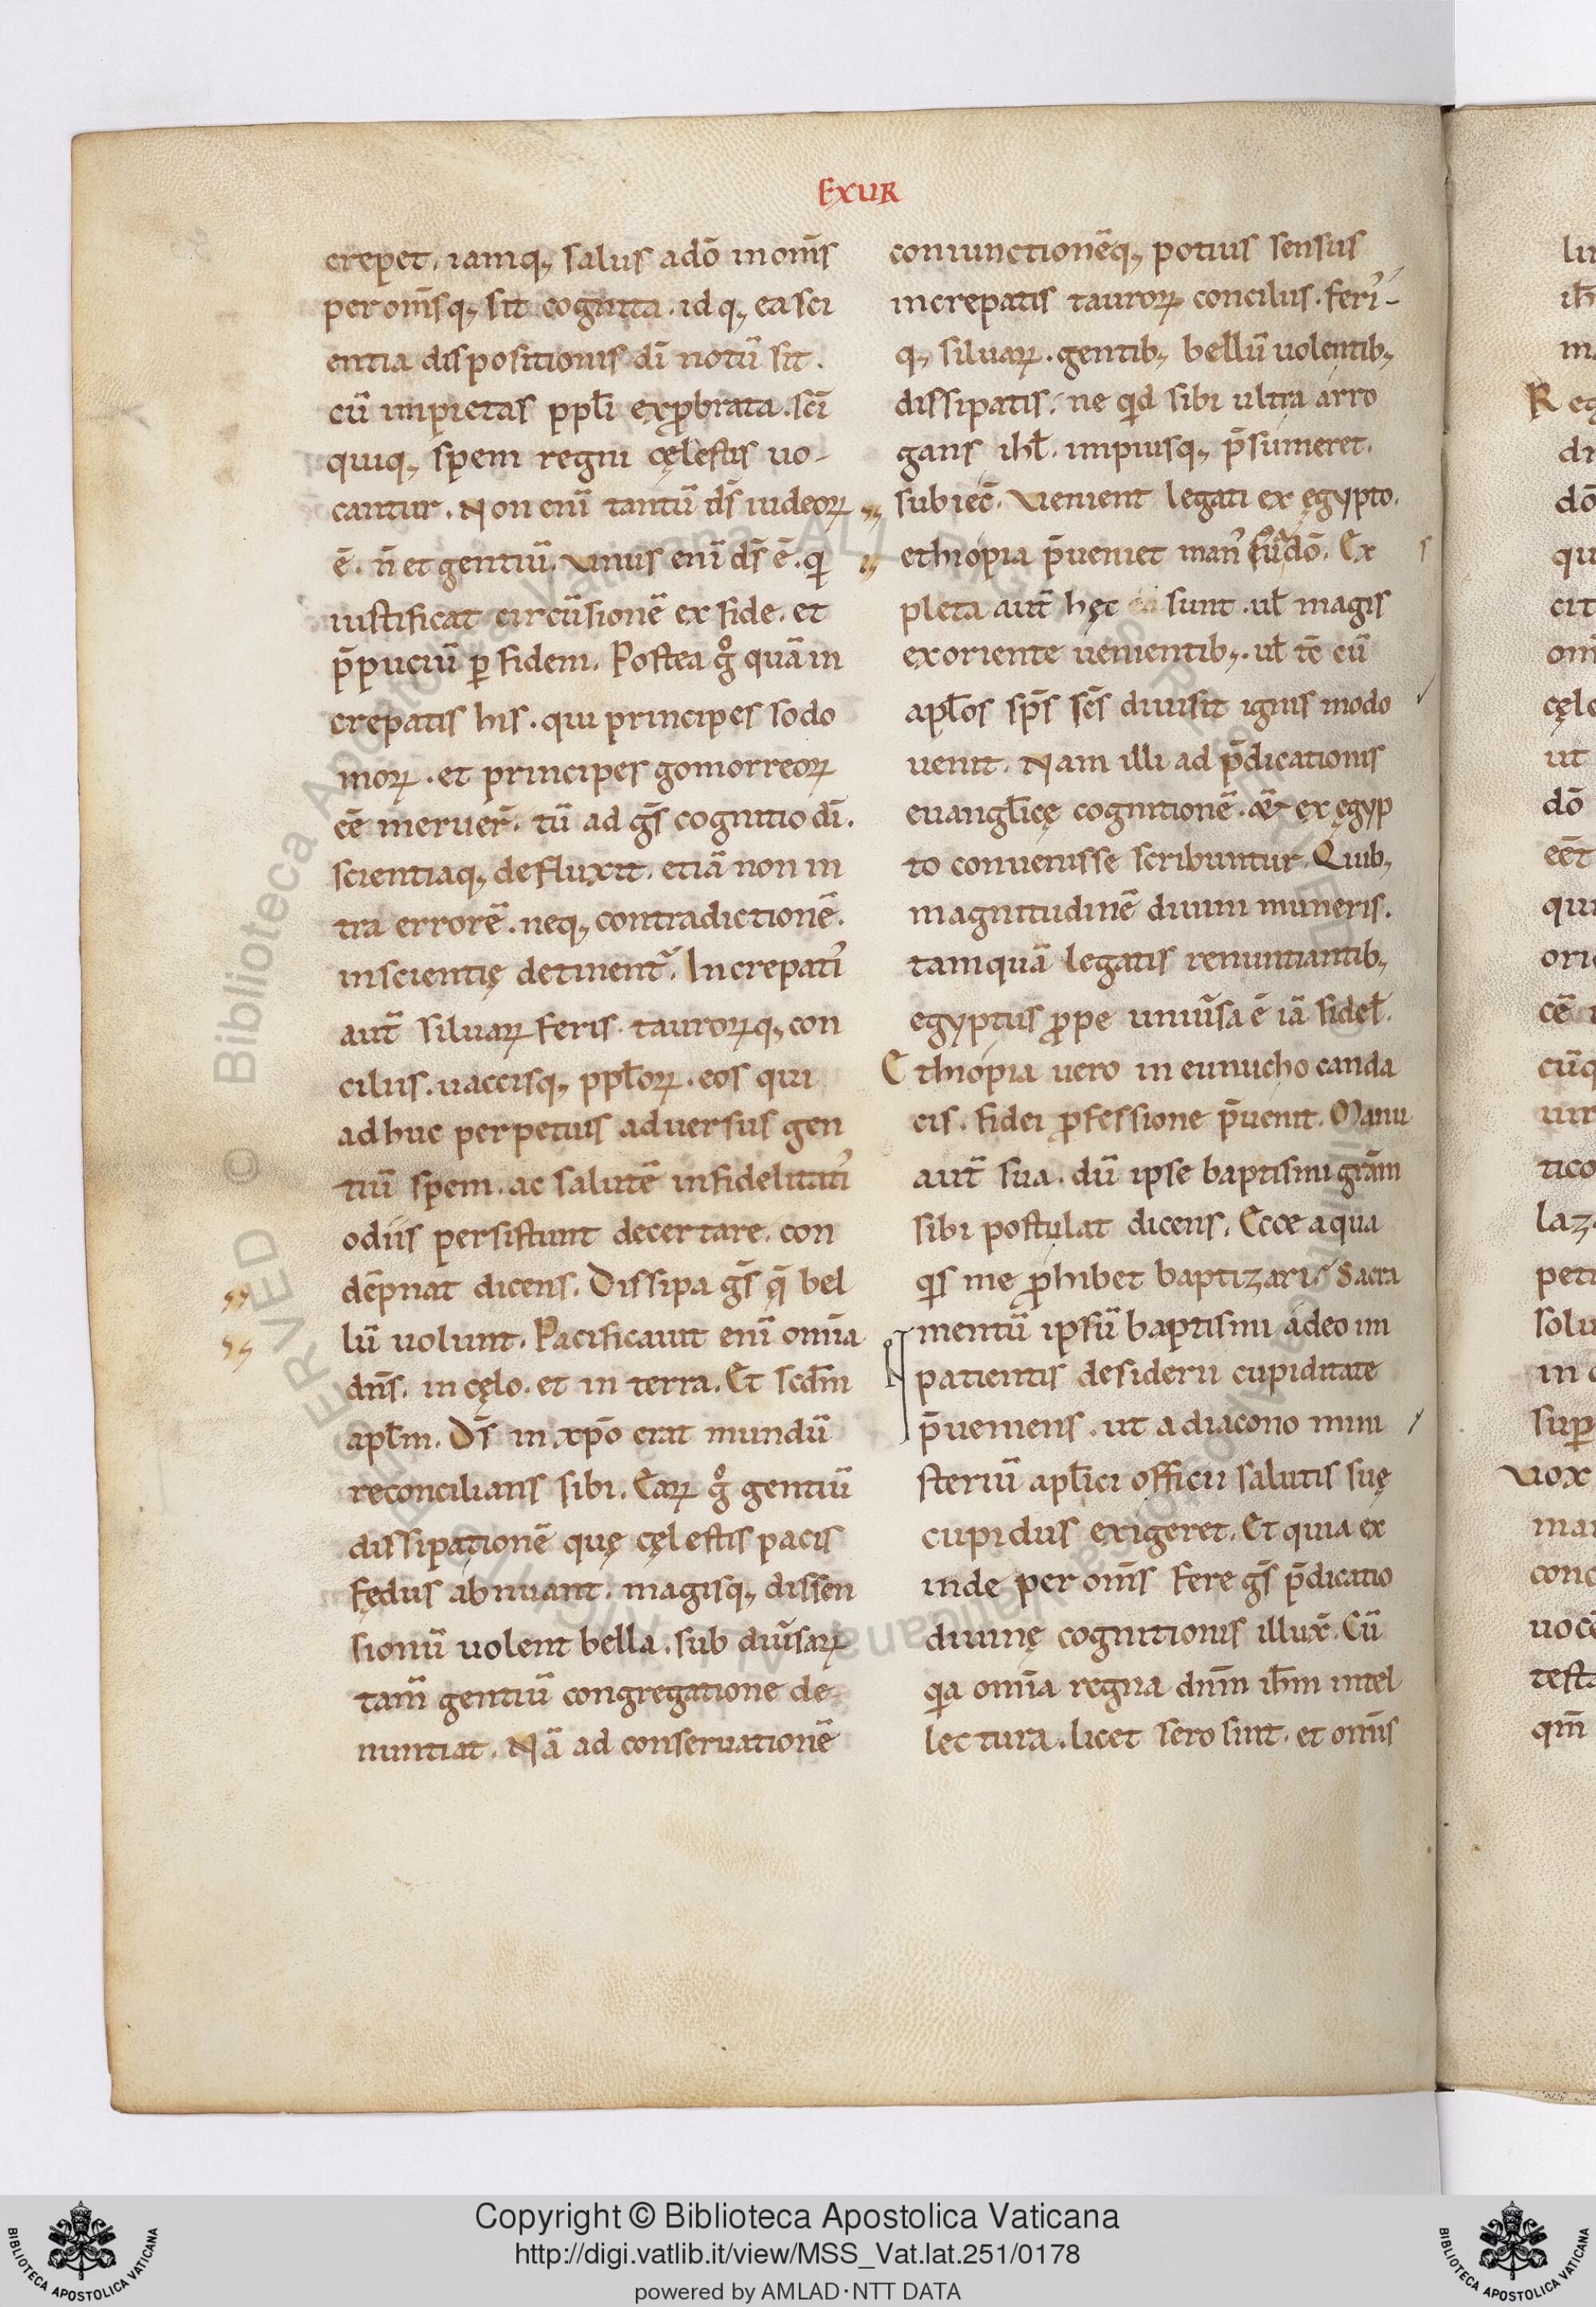 EXUR
crepet. iamq; salus a dō in om̄s
per om̄sq; sit cognita. id q; ea sci
entia dispositionis dī notū sit.
cū impietas ppłi exꝓbrata. scī
quiq; spem regni cęlestis uo-
cantur. Non enī tantū dś iudeoꝝ
ē. n̄ et gentiū. Vnus enī dś ē. qi
iustificat circūsionē ex fide. et
p̄puciū ꝑ fidem. Postea gͦ quā in
crepatis his. qui principes sodo
moꝝ. et principes gomorreoꝝ
eē meruer̄. tū ad gs̄ cognitio dī.
scientiaq; defluxit. etiā non in
tra errorē. neq; contradictionē.
inscientię detinent᷑. Increpatꝰ
aut̄ siluaꝝ feris. tauroꝝq; con
ciliis. uaccisq; ppłoꝝ. eos qui
adhuc perpetuis aduersus gen
tiū spem. ac salutē infidelitatꝰ
odiis persistunt decertare. con
dēpnat dicens. Dissipa gs̄ q̄ bel
lū uolunt. Pacificauit enī om̄ia
dn̄s. in cęlo. et in terra. Et scd̄m
apłm. Dś in xp̄o erat mundū
reconcilians sibi. Eaꝝ gͦ gentiū
dissipationē quę cęlestis pacis
fędus abnuant. magisq; dissen
sionū uolent bella. sub diūsaꝝ
tam̄ gentiū congregatione de
nuntiat. Nā ad conseruationē
coniunctionēq; potius sensus
increpatis tauroꝝ conciliis. ferꝰ-
q; siluaꝝ. gentib; bellū uolentib;
dissipatis. ne qid sibi ultra arro
gans ihł. impiusq; p̄sumeret.
subiec̄. Venient legati ex ęgypto.
ethiopia p̄ueniet manꝰ suā dō. Ex
pleta aut̄ hęc sunt. uł magis
ex oriente uenientib;. uł tc̄ cū
apłos sp̄s sc̄s diuisit ignis modo
uenit. Nam illi ad p̄dicationis
euangłicę cognitionē. &̄ ex ęgyp
to conuenisse scribuntur. Quib;
magnitudinē diuini muneris.
tamquā legatis renuntiantib;
egyptus ꝓpe uniūsa ē iā fideł.
Ethiopia uero in eunucho canda
cis. fidei ꝓfessione p̄uenit. Manu
aut̄ sua. dū ipse baptismi grām
sibi postulat dicens. Ecce aqua
qis me ꝓhibet baptizari. Sacra
mentū ipsū baptismi adeo im
patientis desiderii cupiditate
p̄ueniens. ut a diacono mini
steriū apłici officii salutis suę
cupidus exigeret. Et quia ex
inde per om̄s fere gs̄ p̄dicatio
diuinę cognitionis illux̄. Cū
qia om̄ia regna dnm̄ ih̄m intel
lectura. licet sero sint. et om̄is
Copyright © Biblioteca Apostolica Vaticana
http://digi.vatlib.it/view/MSS_Vat.lat.251/0178
powered by AMLAD·NTT DATA